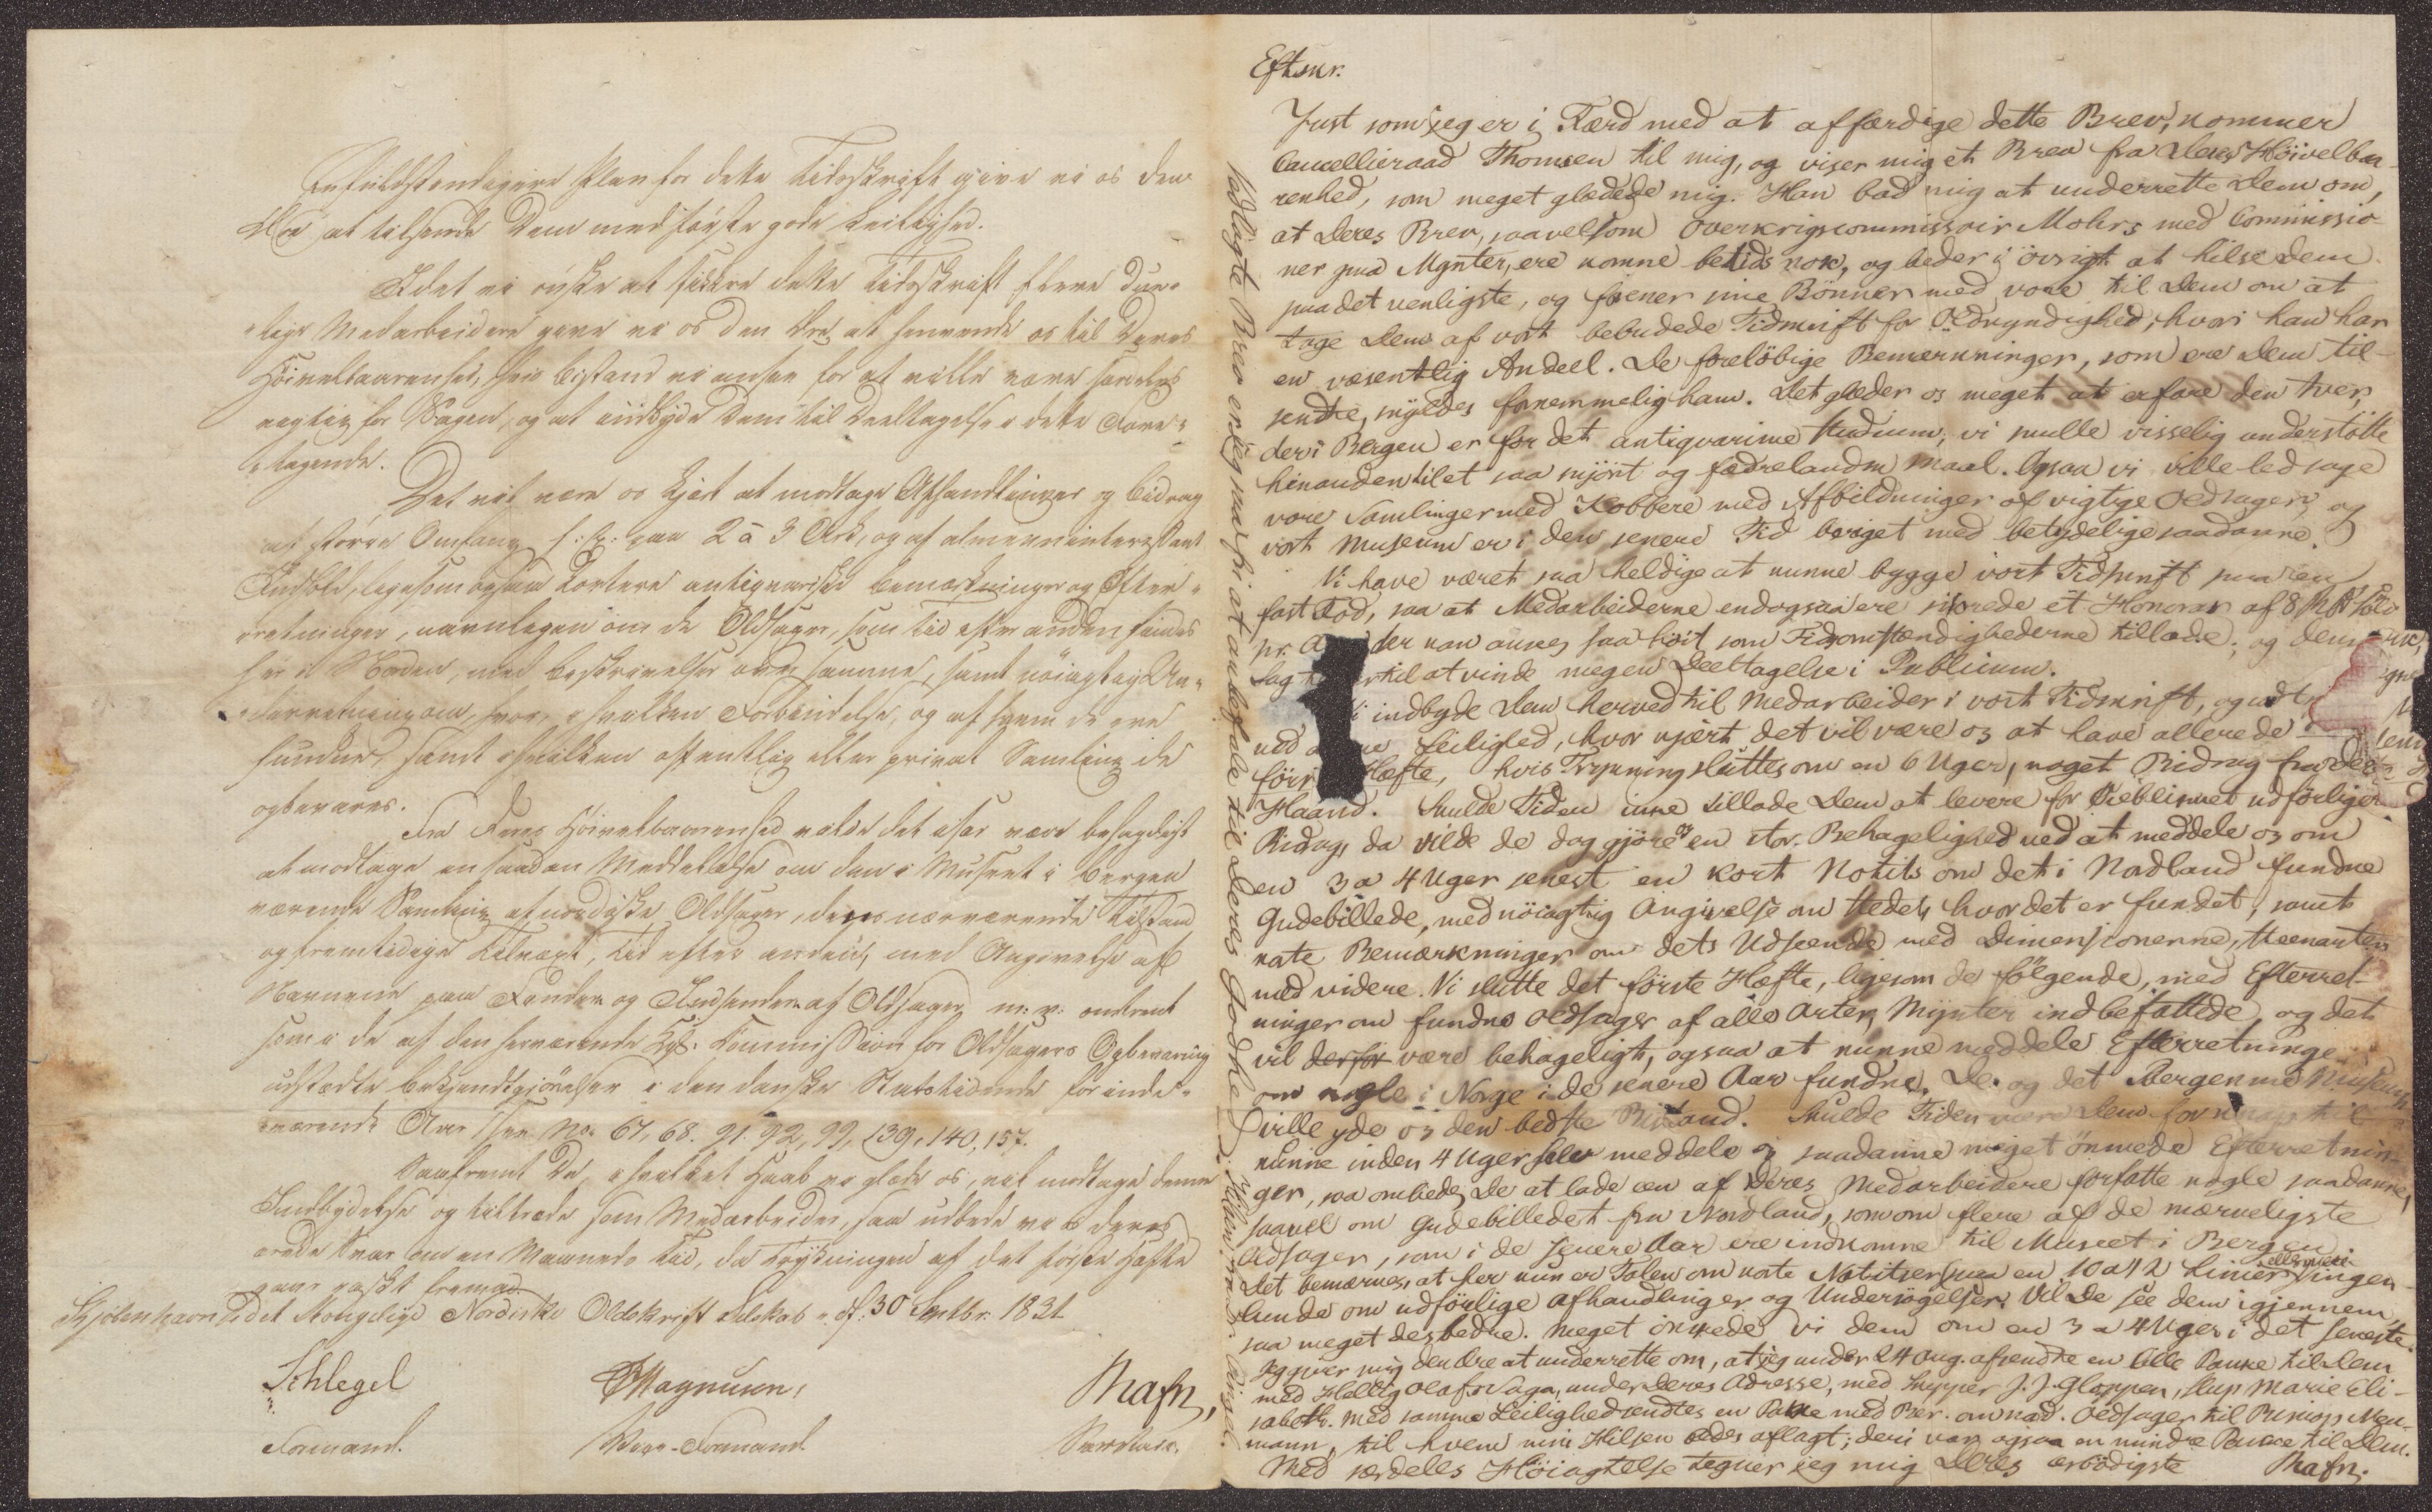 En fuldstændigere Plan for dette Tidsskrift give vi os den
Ære at tilsende Dem med første gode Leilighed.
Idet vi ønske at sikkre dette Tidsskrift flere due-
lige Medarbeidere give vi os den Ære at henvende os til Deres
Høivelbaarenhed, hvis Bistand vi ansee for at ville være særdeles
vigtig for Sagen, og at indbyde Dem til Deeltagelse i dette Fore-
tagende.
Det vil være os kjært at modtage Afhandlinger og Bidrag
af større Omfang f: Ex: paa 2 à 3 Ark, og af almeeninteressant
Indhold, ligesom ogsaa kortere antiqvariske Bemærkninger og Efter-
retninger, navnligen om de Oldsager, som Tid efter anden findes
her i Norden, med Beskrivelser over samme, samt nøiagtig Un-
derretning om, hvor, i hvilken Forbindelse, og af hvem de ere
fundne, samt i hvilken offentlig eller privat Samling de
opbevares.
Fra Deres Høivelbaarenhed vilde det især være behageligt
at modtage en saadan Meddelelse om den i Museet i Bergen
værende Samling af nordiske Oldsager, deres nærværende Tilstand
og fremtidige Tilvæxt, Tid efter anden, med Angivelse af
Navnene paa Finder og Indsender af Oldsager m: v: omtrent
som i de af den herværende Kgl. Commission for Oldsagers Opbevaring
udstædte Bekjendtgjørelser i den danske Statstidende for inde-
værende Aar see No. 67, 68. 91. 92, 99, 139, 140, 157.
Saafremt De, i hvilket Haab vi glæde os, vil modtage denne
Indbydelse og tiltræde som Medarbeider, saa udbede vi os Deres
ærede Svar om en Maaneds Tid, da Trykningen af det første Hefte
gaaer raskt fremad.
Kjøbenhavn i det Kongelige Nordiske Oldskrift Selskab d. 30 Septbr. 1831.
Schlegel FMagnusen, Rafn,
Formand. Vice-Formand. Secretair.
Eftskr.
Just som jeg er i Færd med at affærdige dette Brev, kommer
Cancellieraad Thomsen til mig, og viser mig et Brev fra Deres Höivelbaa-
renhed, som meget glædede mig. Han bad mig at underrette Dem om,
at Deres Brev, saavelsom Overkrigscommissair Mohrs med Commissio-
ner paa Mynter, ere komne betids nok, og beder i övrigt at hilse Dem
paa det venligste, og forener sine Bönner med vore til Dem om at
tage Dem af vort bebudede Tidsskrift for Oldkyndighed, hvori han har
en væsentlig Andeel. De foreløbige Bemærkninger, som ere Dem til-
sendte, skyldes fornemmelig ham. Det glæder os meget at erfare den Iver,
der i Bergen er for det antiqvariske Studium, vi skulle visselig understötte
hinanden til et saa skjönt og fædrelandsk Maal. Ogsaa vi ville ledsage
vore Samlinger med Kobbere med Afbildninger af vigtige Oldsager, og
vort Museum er i den senere Tid beriget med betydelige saadanne.
Vi have været saa heldige at kunne bygge vort Tidsskrift paa en
fast Fod, saa at Medarbeiderne endogsaa ere sikkrede et Honorar af 8
pr. der kan ansees saa höit som Tidsomstændighederne tillade; og
Sag til at vinde megen Deeltagelse i Publicum.
indbyde Dem herved til Medarbeider i vort Tidsskrift, og
ved Leilighed, hvor kjært det vil være os at have allerede
förs Hæfte, hvis Trykning sluttes om en 6 Uger, noget Bidrag fra Deres
Haand. Skulde Tiden ikke tillade Dem at levere for Öieblikket udförligere
Bidrag, da vilde De dog gjöre os en stor Behagelighed ved at meddele os om
en 3 a 4 Uger senest en kort Notits om det i Nordland fundne
Gudebillede, med nöiagtig Angivelse om Stedet, hvor det er fundet, samt
korte Bemærkninger om dets Udseende med Dimensionerne, Steenarten
med videre. Vi slutte det förste Hæfte, ligesom de fölgende, med Efterret-
ninger om fundne Oldsager af alle Arter, Mynter indbefattede, og det
vil derfor være behageligt, ogsaa at kunne meddele Efterretninge
om nogle i Norge i de senere Aar fundne. De og det Bergenske Museum
ville yde os den bedste Bistand. Skulde Tiden være Dem for knap til
kunne inden 4 Uger selv meddele os saadanne meget önskede Efterretnin-
ger, saa ombedes De at lade een af Deres Medarbeidere forfatte nogle saadanne,
saavel om Gudebilledet fra Nordland, som om flere af de mærkeligste
Oldsager, som i de senere Aar ere indkomne til Museet i Bergen.
Det bemærkes, at her kun er Talen om korte Notitser paa en 10 a 12 Linier eller mere ingen-
lunde om udförlige Afhandlinger og Undersögelser. Vil De see dem igjennem,
saa meget desbedre. Meget önskede vi dem om en 3 a 4 Uger i det seneste.
Jeg giver mig den Ære at underrette om, at jeg under 24 Aug. afsendte en lille Pakke til Dem
med Hellig Olafs Saga, under Deres Adresse, med Skipper J. J. Gloppen, Slup Marie Eli-
sabeth. Med samme Leilighed sendtes en Pakke med Ber. om nord. Oldsager til Biskop Neu-
mann, til hvem min Hilsen bedes aflagt; deri var ogsaa en mindre Pakke til Dem.
Med særdeles Höiagtelse tegner jeg mig Deres ærbödigste Rafn.
Vedlagte Brev er jeg saa fri at anbefale til Deres Godhed